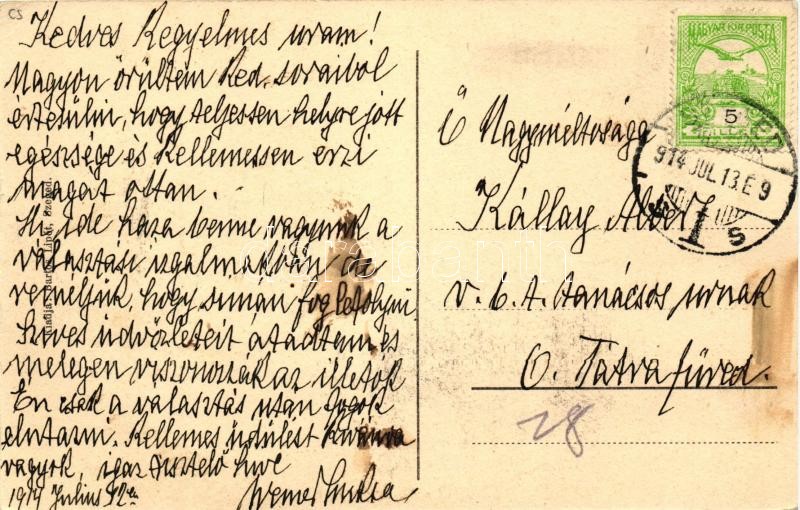 CS
Kedves Kegyelmes uram!
Nagyon örültem Ked. soraiból
értesülni, hogy teljessen helyre jött
egészsége és kellemessen érzi
magát ottan.
Mi ide haza benne vagyunk a
választási izgalmakban de
reméljük, hogy simán fog lefolyni
Szíves üdvözleteit átadtam és
melegen viszonozzák az illetők
Én csak a választás után fogok
elutazni. Kellemes üdülést kívánva
vagyok, igaz tisztelő híve
1914 Julius 12én
MAGYAR KIR. POSTA
5
FILLÉR
914 JUL.13.E 9
Ő Nagyméltósága
Kállay Albert
v. b. t. tanácsos urnak
Ó. Tátrafüred.
28
darabanth